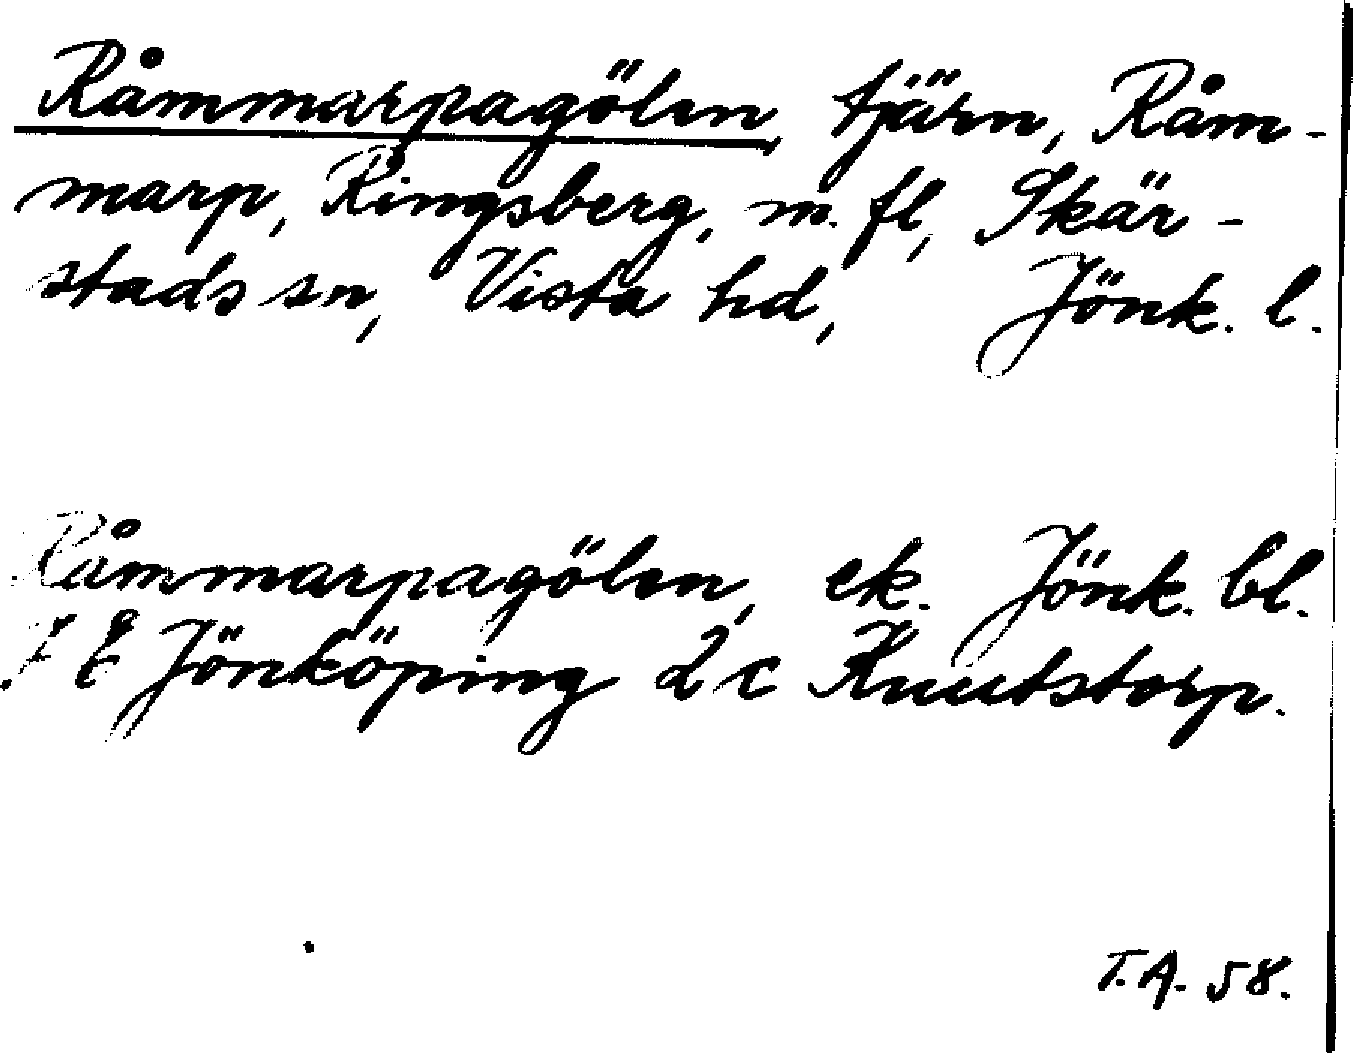 Råmmarpagölen, tjärn, Råm-
marp, Ringsberg, m. fl, Skär-
stads sn, Vista hd, Jönk. l.
Råmmarpagölen, ek. Jönk. bl.
7 E Jönköping 2 c Knutstorp.
T.A. 58.